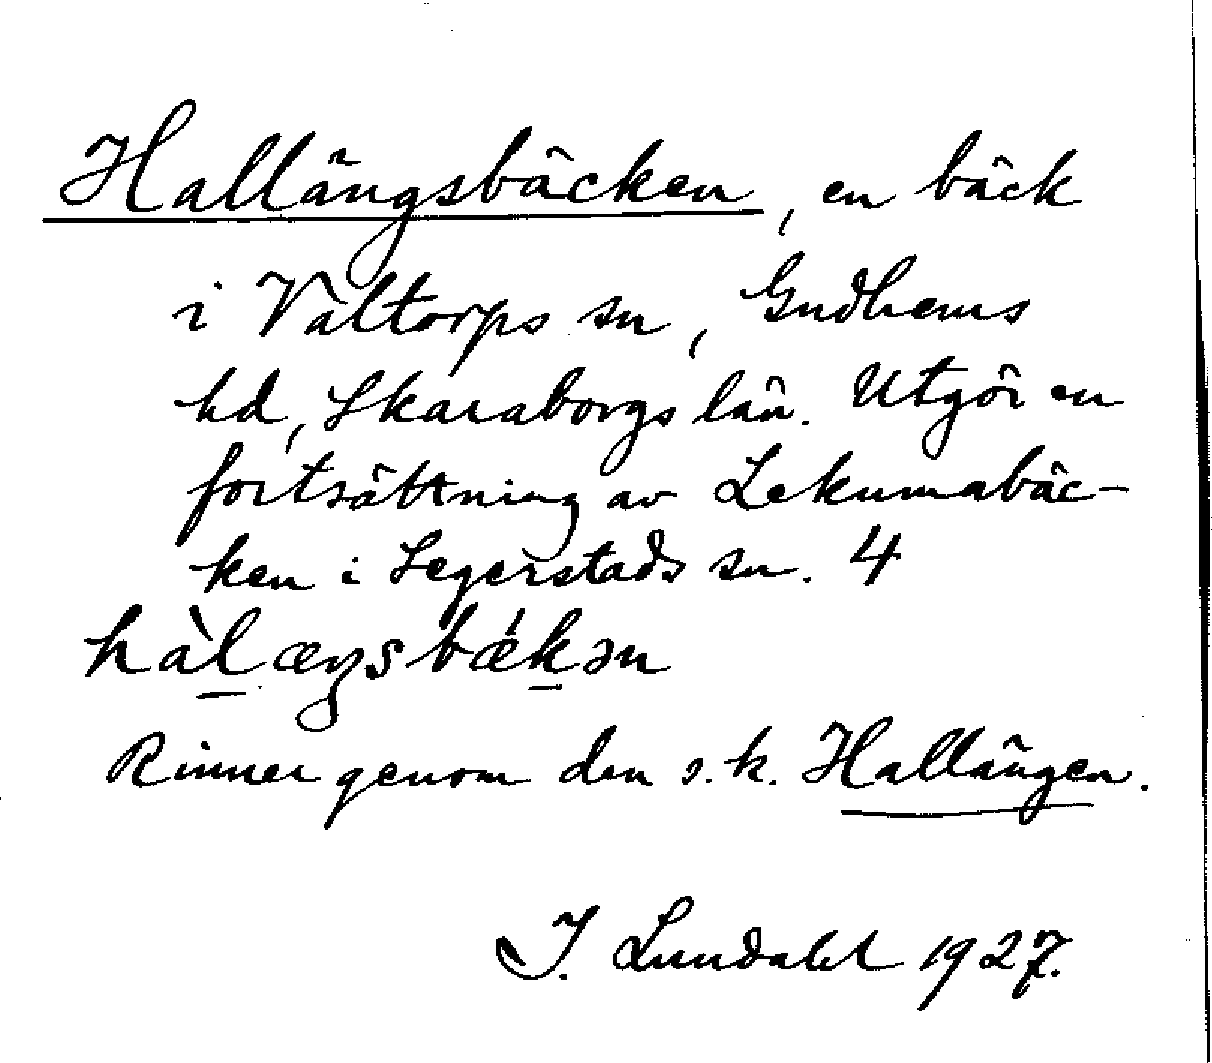 Hallängsbäcken, en bäck
i Valtorps sn, Gudhems
hd, Skaraborgs län. Utgör en
fortsättning av Lekumabäc-
ken i Segerstads sn. 4
hàlæŋsbǽkən
Rinner genom den s.k. Hallängen.
I. Lundahl 1927.